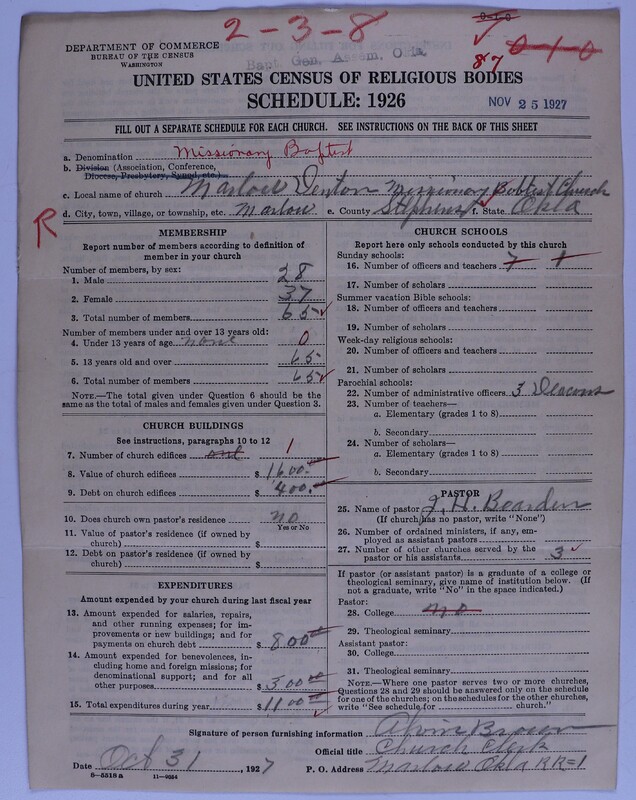 2-3-8
0-1-0
0-1-0
87
DEPARTMENT OF COMMERCE
BUREAU OF THE CENSUS
WASHINGTON
Bapt. Gen. Assem. Okla.
UNITED STATES CENSUS OF RELIGIOUS BODIES
SCHEDULE: 1926
NOV 25 1927
FILL OUT A SEPARATE SCHEDULE FOR EACH CHURCH. SEE INSTRUCTIONS ON THE BACK OF THIS SHEET
a. Denomination Missionary Baptist
b. Division (Association, Conference, Diocese, Presbytery, Synod, etc.)
c. Local name of church Marlow Denton Missionary Babtist Church
d. City, town, village, or township, etc. Marlow e. County Stephens f. State Okla
R
MEMBERSHIP
Report number of members according to definition of member in your church
Number of members, by sex:
1. Male 28
2. Female 37
3. Total number of members 65
Number of members under and over 13 years old:
4. Under 13 years of age none 0
5. 13 years old and over 65
6. Total number of members 65
NOTE.—The total given under Question 6 should be the same as the total of males and females given under Question 3.
CHURCH BUILDINGS
See instructions, paragraphs 10 to 12
7. Number of church edifices one 1
8. Value of church edifices $1600.
9. Debt on church edifices $400.
10. Does church own pastor's residence no
Yes or No
11. Value of pastor's residence (if owned by church) $
12. Debt on pastor's residence (if owned by church) $
EXPENDITURES
Amount expended by your church during last fiscal year
13. Amount expended for salaries, repairs, and other running expenses; for improvements or new buildings; and for payments on church debt $800
14. Amount expended for benevolences, including home and foreign missions; for denominational support; and for all other purposes $300
15. Total expenditures during year $1100
CHURCH SCHOOLS
Report here only schools conducted by this church
Sunday schools:
16. Number of officers and teachers 7 1
17. Number of scholars
Summer vacation Bible schools:
18. Number of officers and teachers
19. Number of scholars
Week-day religious schools:
20. Number of officers and teachers
21. Number of scholars
Parochial schools:
22. Number of administrative officers 3 Deacons
23. Number of teachers—
a. Elementary (grades 1 to 8)
b. Secondary
24. Number of scholars—
a. Elementary (grades 1 to 8)
b. Secondary
PASTOR
25. Name of pastor J. H. Bearden
(If church has no pastor, write "None")
26. Number of ordained ministers, if any, employed as assistant pastors
27. Number of other churches served by the pastor or his assistants 3
If pastor (or assistant pastor) is a graduate of a college or theological seminary, give name of institution below. (If not a graduate, write "No" in the space indicated.)
Pastor:
28. College no
29. Theological seminary
Assistant pastor:
30. College
31. Theological seminary
NOTE.—Where one pastor serves two or more churches, Questions 28 and 29 should be answered only on the schedule for one of the churches; on the schedules for the other churches, write "See schedule for church."
Signature of person furnishing information Alvin Brown
Official title Church Clerk
Date Oct 31, 1927 P. O. Address Marlow Okla RR=1
6—5518a 11—9054